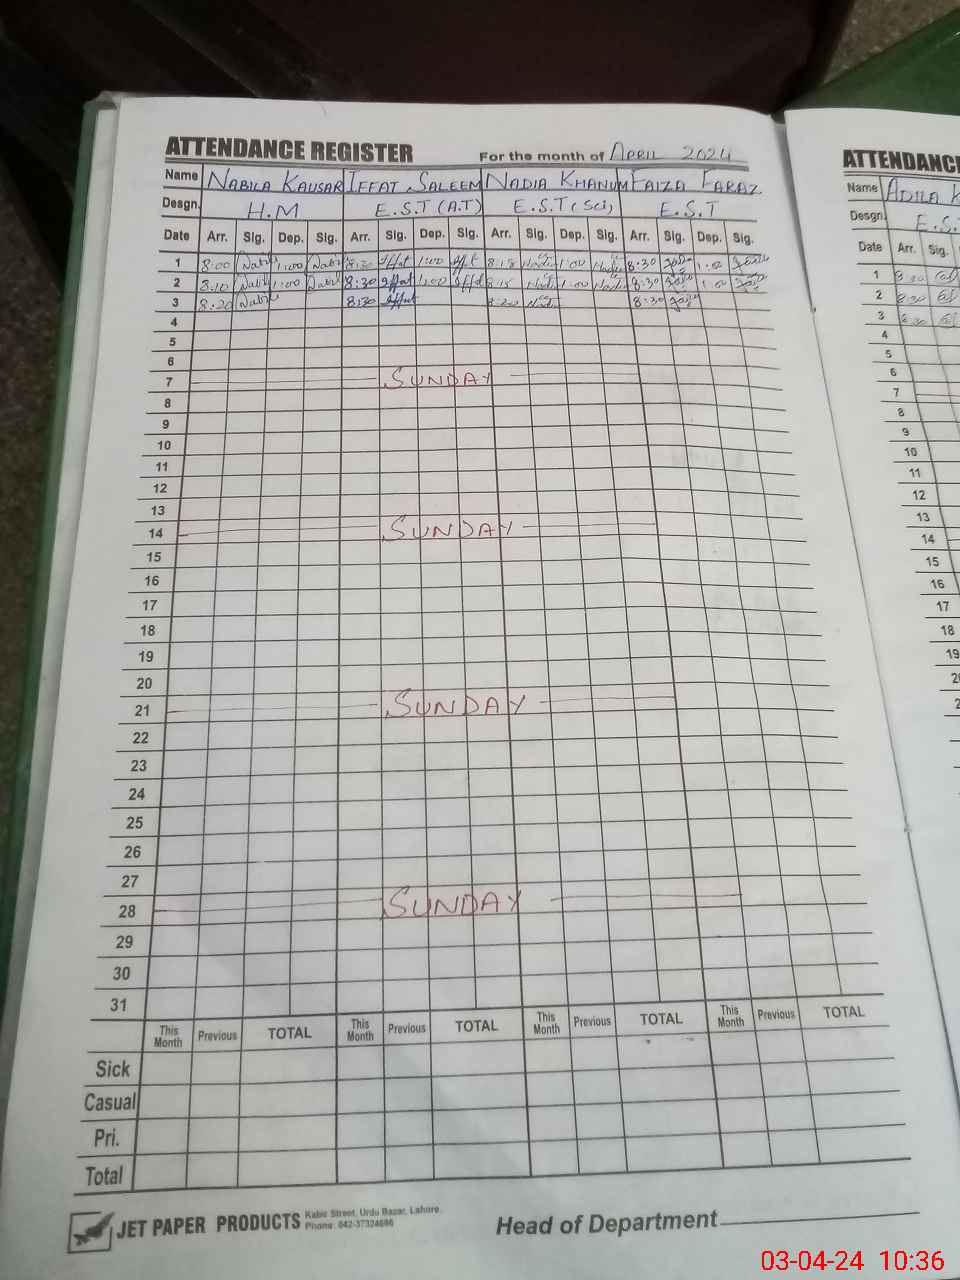 ATTENDANCE REGISTER For the month of APRIL 2024
Name NABILA KAUSAR IFFAT SALEEM NADIA KHANUM FAIZA FARAZ
Desgn. H.M E.S.T (A.T) E.S.T (Sci) E.S.T
Date Arr. Sig. Dep. Sig. Arr. Sig. Dep. Sig. Arr. Sig. Dep. Sig. Arr. Sig. Dep. Sig.
1 8:00 1:00 8:30 1:00 8:15 1:00 8:30 1:00
2 8:10 1:00 8:30 1:00 8:15 1:00 8:30 1:00
3 8:20 8:30 8:20 8:30
4
5
6
7 SUNDAY
8
9
10
11
12
13
14 SUNDAY
15
16
17
18
19
20
21 SUNDAY
22
23
24
25
26
27
28 SUNDAY
29
30
31
This Month Previous TOTAL This Month Previous TOTAL This Month Previous TOTAL This Month Previous TOTAL
Sick
Casual
Pri.
Total
JET PAPER PRODUCTS Kabir Street, Urdu Bazar, Lahore.
Phone: 042-37324696
Head of Department
ATTENDANCE
Name ADILA K
Desgn. E.S.
Date Arr. Sig.
1 8:30
2 8:30
3 8:30
4
5
6
7
8
9
10
11
12
13
14
15
16
17
18
19
03-04-24 10:36